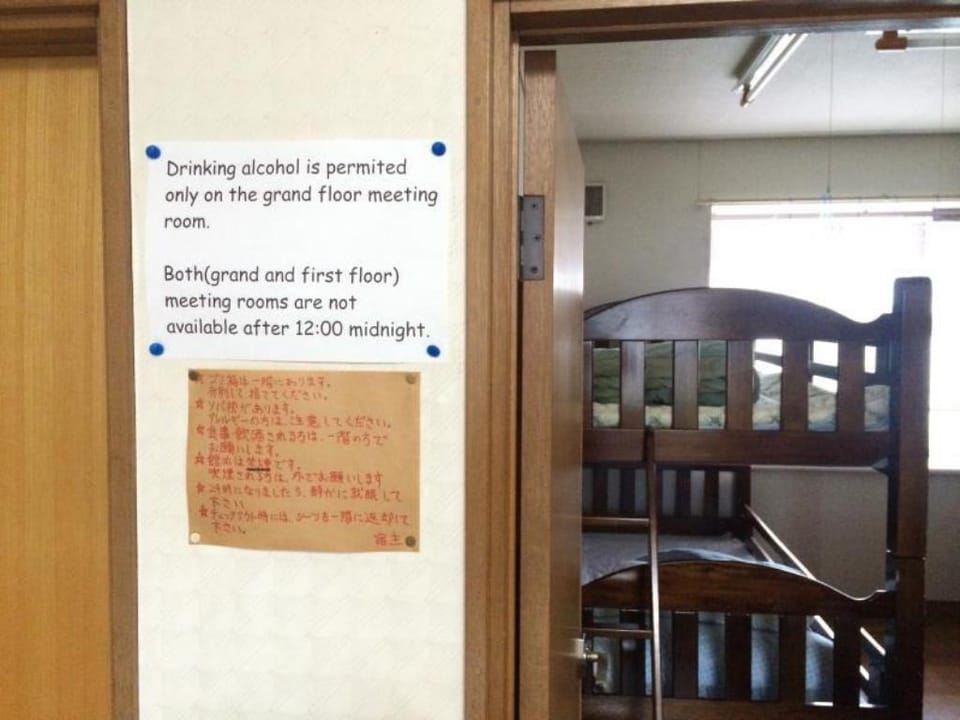 Drinking alcohol is permited
only on the grand floor meeting
room.
Both(grand and first floor)
meeting rooms are not
available after 12:00 midnight.
☆ゴミ箱は一階にあります。
分別して、捨ててください。
☆ソバ枕があります。
アレルギーの方は、注意してください。
☆食事・飲酒される方は、一階の方で
お願いします。
☆館内は禁煙です。
喫煙される方は、外でお願いします
☆24時になりましたら、静かに就眠して
下さい
☆チェックアウト時には、シーツを一階に返却して
下さい。
宿主